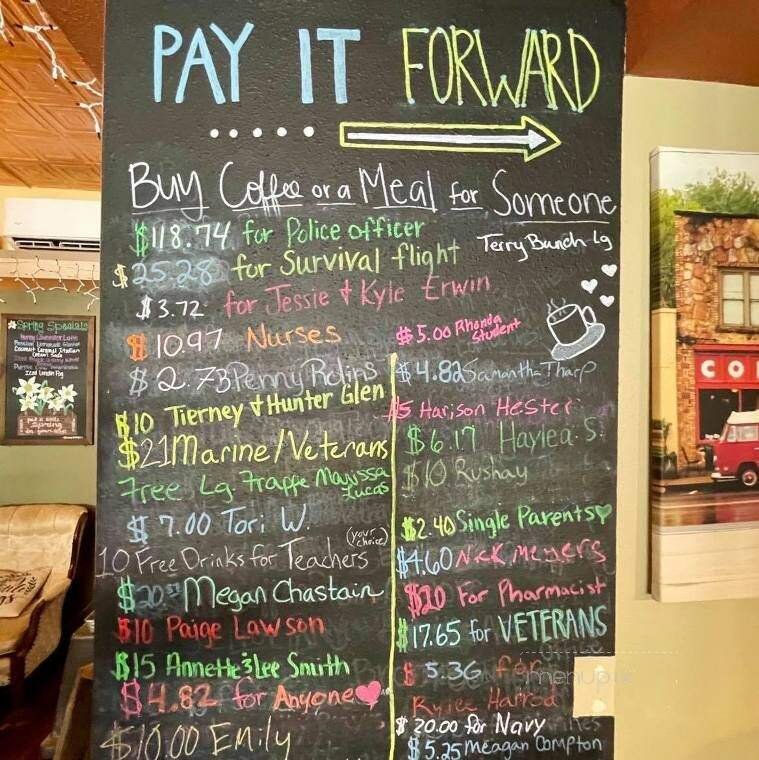 PAY IT FORWARD
Buy Coffee or a Meal for Someone
$118.74 for Police officer
Terry Bunch Lg
$25.28 for Survival flight
$3.72 for Jessie & Kyle Erwin
$10.97 Nurses
$5.00 Rhonda
Student
$2.73 Penny Rolins
$10 Tierney & Hunter Glen
$21 Marine/Veterans
Free Lg Frappe Maryssa
Lucas
$7.00 Tori W.
(your choice)
10 Free Drinks for Teachers
$20 Megan Chastain
$10 Paige Lawson
$15 Annette & Lee Smith
$4.82 for Anyone
$10.00 Emily
$4.82 Samantha Tharp
$5 Harison Hester
$6.17 Haylea S.
$10 Rushay
$2.40 Single Parents
$4.60 Nick Meyers
$20 For Pharmacist
$17.65 for VETERANS
$5.36 for
Rylee Harrod
$20.00 for Navy
$5.25 Meagan Compton
Spring Specials
Honey Lavender Latte
Iced Lemon Fog
Spring
CO
menupix